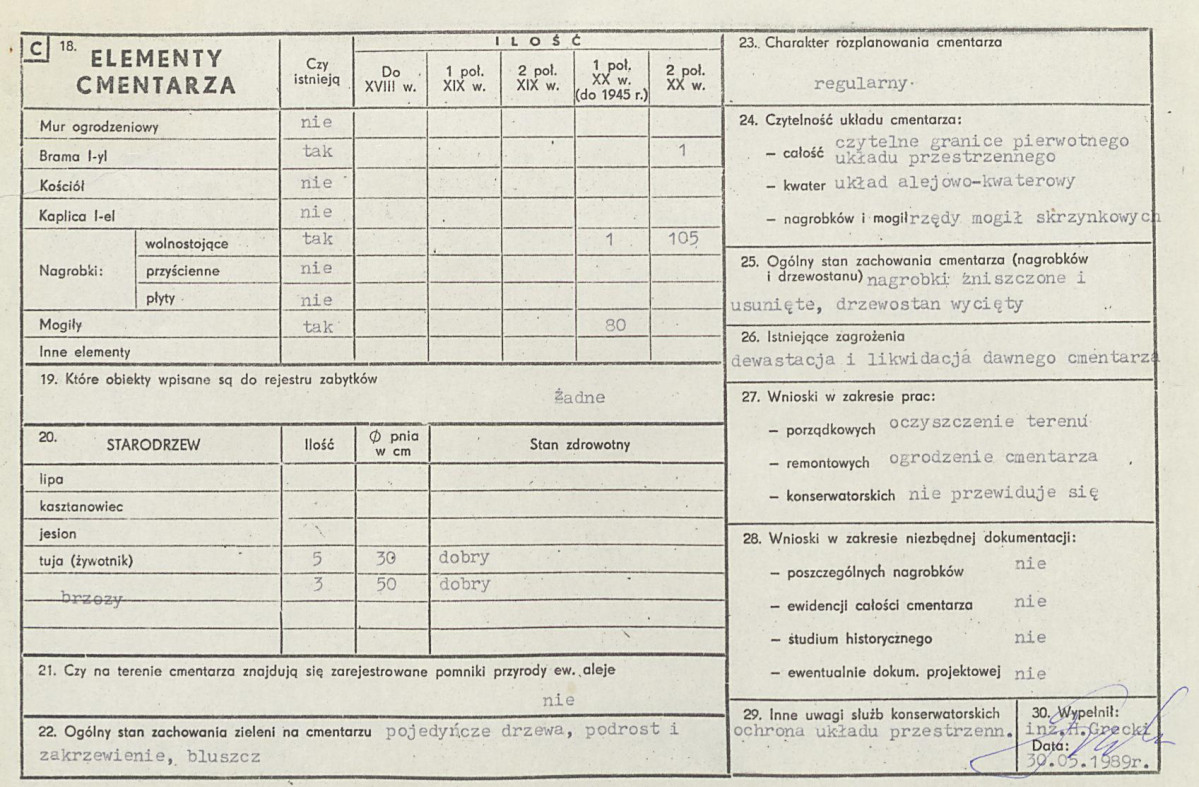 C 18. ELEMENTY CMENTARZA
Czy istnieją
ILOŚĆ
Do XVIII w.
1 poł. XIX w.
2 poł. XIX w.
1 poł. XX w. (do 1945 r.)
2 poł. XX w.
Mur ogrodzeniowy nie
Brama I-yl tak 1
Kościół nie
Kaplica I-el nie
Nagrobki: wolnostojące tak 1 105
przyścienne nie
płyty nie
Mogiły tak 80
Inne elementy
19. Które obiekty wpisane są do rejestru zabytków
żadne
20. STARODRZEW Ilość Ø pnia w cm Stan zdrowotny
lipa
kasztanowiec
jesion
tuja (żywotnik) 5 30 dobry
brzozy 3 50 dobry
21. Czy na terenie cmentarza znajdują się zarejestrowane pomniki przyrody ew. aleje
nie
22. Ogólny stan zachowania zieleni na cmentarzu pojedyńcze drzewa, podrost i
zakrzewienie, bluszcz
23. Charakter rozplanowania cmentarza
regularny
24. Czytelność układu cmentarza:
– całość czytelne granice pierwotnego
układu przestrzennego
– kwater układ alejowo-kwaterowy
– nagrobków i mogił rzędy mogił skrzynkowych
25. Ogólny stan zachowania cmentarza (nagrobków
i drzewostanu) nagrobki zniszczone i
usunięte, drzewostan wycięty
26. Istniejące zagrożenia
dewastacja i likwidacja dawnego cmentarza
27. Wnioski w zakresie prac:
– porządkowych oczyszczenie terenu
– remontowych ogrodzenie cmentarza
– konserwatorskich nie przewiduje się
28. Wnioski w zakresie niezbędnej dokumentacji:
– poszczególnych nagrobków nie
– ewidencji całości cmentarza nie
– studium historycznego nie
– ewentualnie dokum. projektowej nie
29. Inne uwagi służb konserwatorskich
ochrona układu przestrzenn.
30. Wypełnił:
inż.A.Grecki
Data:
30.05.1989r.